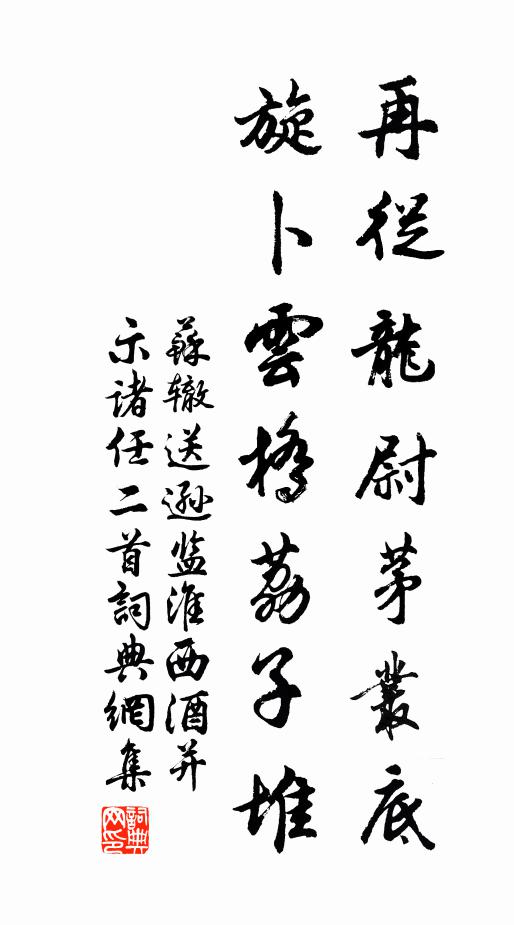 再從龍尉茅叢底
旋卜雲橋荔子堆
蘇轍送遜监淮西酒并
示諸任二首詞典網集
詞典网印